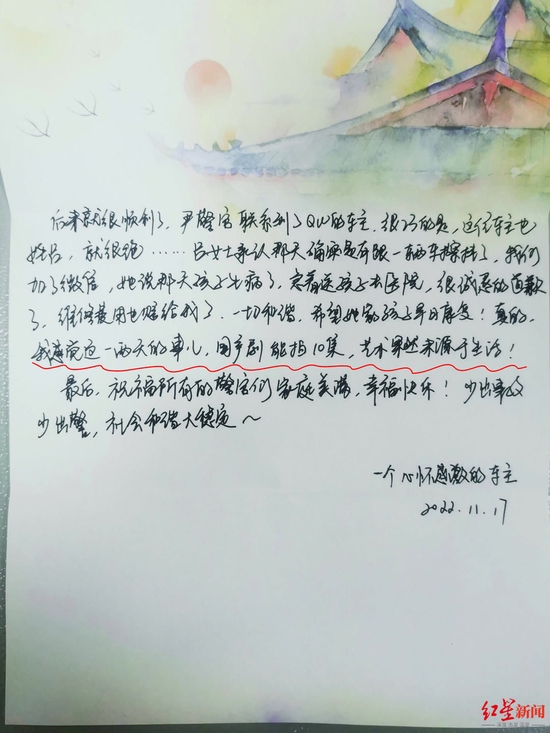 后来就很顺利了，尹警官联系到了QW的车主，很巧的是，这位车主也
姓吕，就很绝……吕女士承认那天确实是有跟一两车擦挂了，我们
加了微信，她说那天孩子生病了，急着送孩子去医院，很诚恳的道歉
了，维修费用也赔给我了。一切和谐，希望她家孩子早日康复！真的，
我感觉这一两天的事儿，国产剧能拍10集，艺术果然来源于生活！
最后，祝福所有的警官们家庭美满，幸福快乐！少出事故
少出警，社会和谐大稳定～
一个心怀感激的车主
2022.11.17
红星新闻